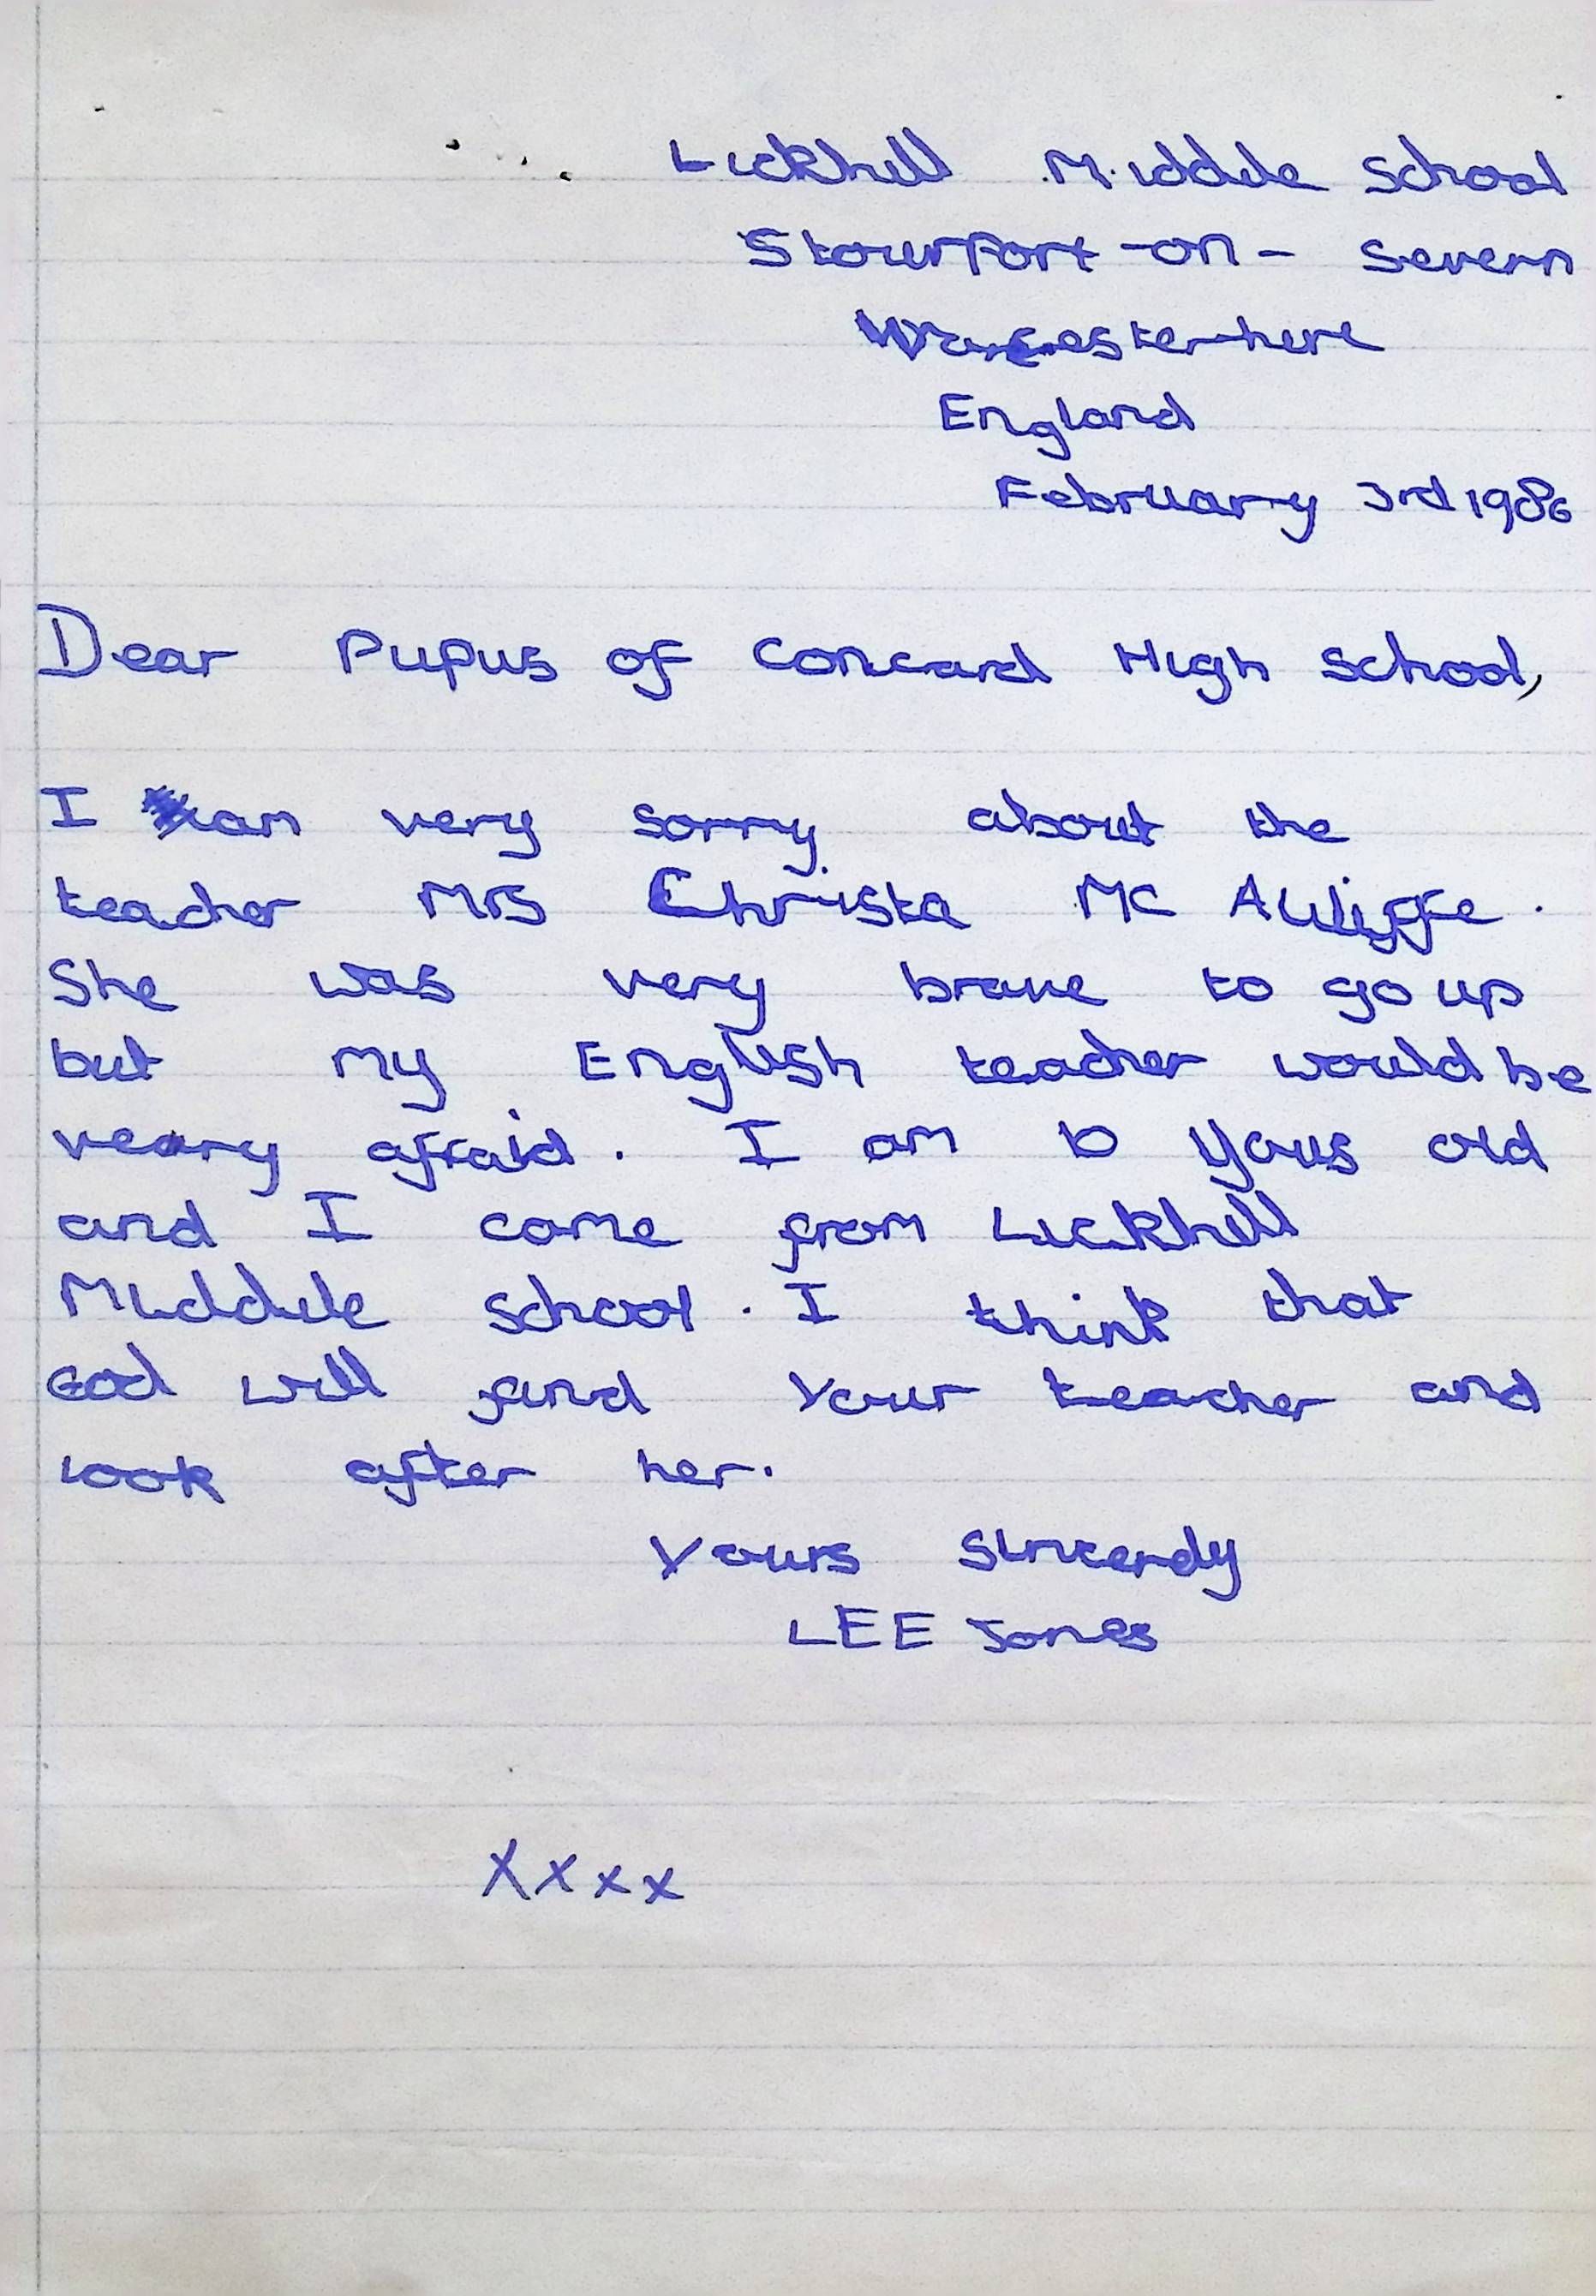 Lickhill Middle School
Stourport-on-Severn
Worcesterhire
England
February 3rd 1986
Dear Pupils of Concord High School,
I am very sorry about the
teacher Mrs Christa Mc Auliffe.
She was very brave to go up
but my English teacher would be
veary afraid. I am 10 years old
and I come from Lickhill
Middle School. I think that
God will find your teacher and
look after her.
Yours Sincerely
LEE Jones
xxxx